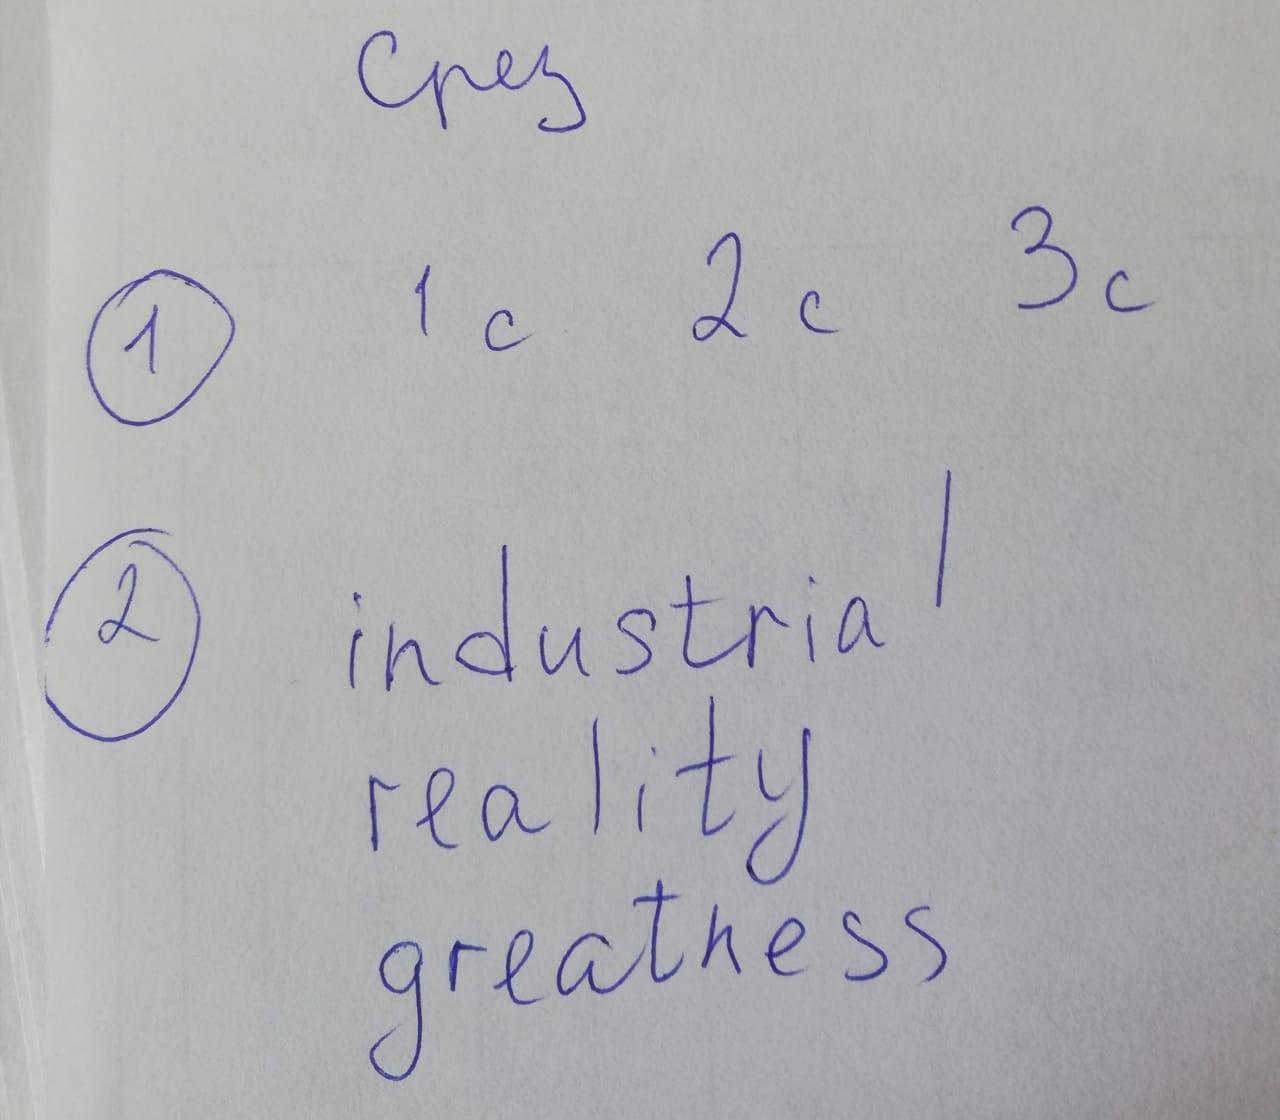 Срез
1 1 с 2 с 3 с
2 industrial
reality
greatness